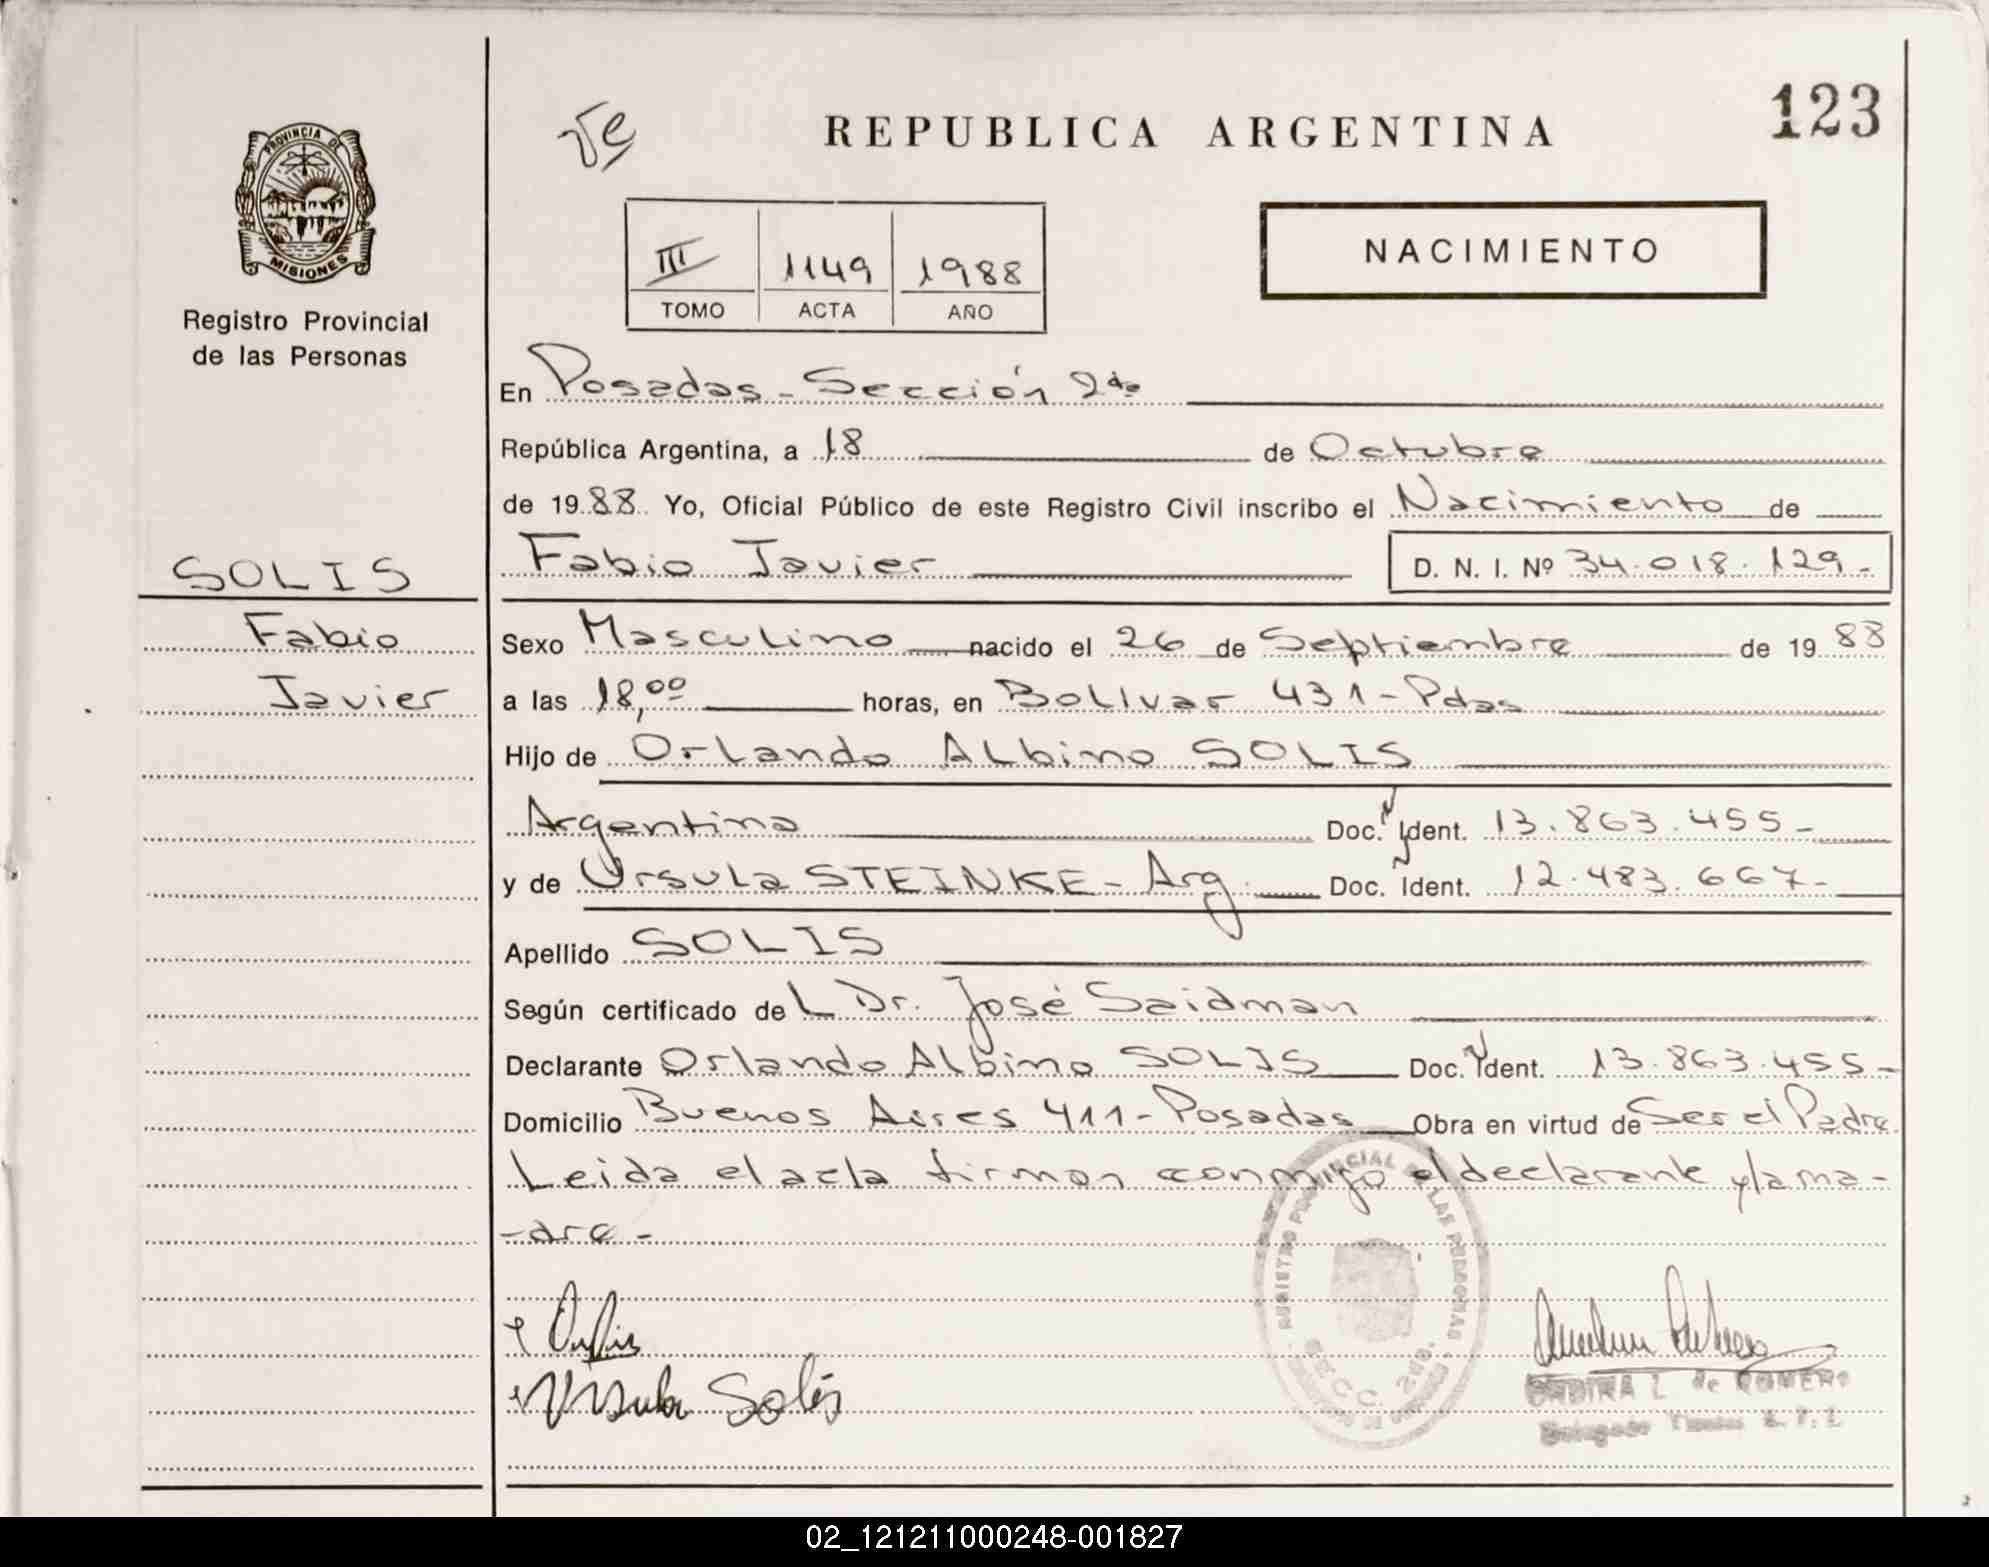 123
REPUBLICA ARGENTINA
PROVINCIA DE MISIONES
Registro Provincial
de las Personas
NACIMIENTO
III 1149 1988
TOMO ACTA AÑO
En Posadas - Sección 2da
República Argentina, a 18 de Octubre
de 1988 Yo, Oficial Público de este Registro Civil inscribo el Nacimiento de
SOLIS
Fabio
Javier
Fabio Javier D. N. I. Nº 34.018.129.-
Sexo Masculino nacido el 26 de Septiembre de 1988
a las 18,00 horas, en Bolívar 431 - Pdas
Hijo de Orlando Albino SOLIS
Argentina Doc. Ident. 13.863.455-
y de Ursula STEINKE - Arg. Doc. Ident. 12.483.667-
Apellido SOLIS
Según certificado del Dr. José Saidman
Declarante Orlando Albino SOLIS Doc. Ident. 13.863.455-
Domicilio Buenos Aires 411 - Posadas Obra en virtud de Ser el Padre
Leida el acta firman conmigo el declarante y la ma-
-dre -
REGISTRO PROVINCIAL DE LAS PERSONAS
SECC. 2da.
Ursula Solís
L. de ROMERO
02_121211000248-001827